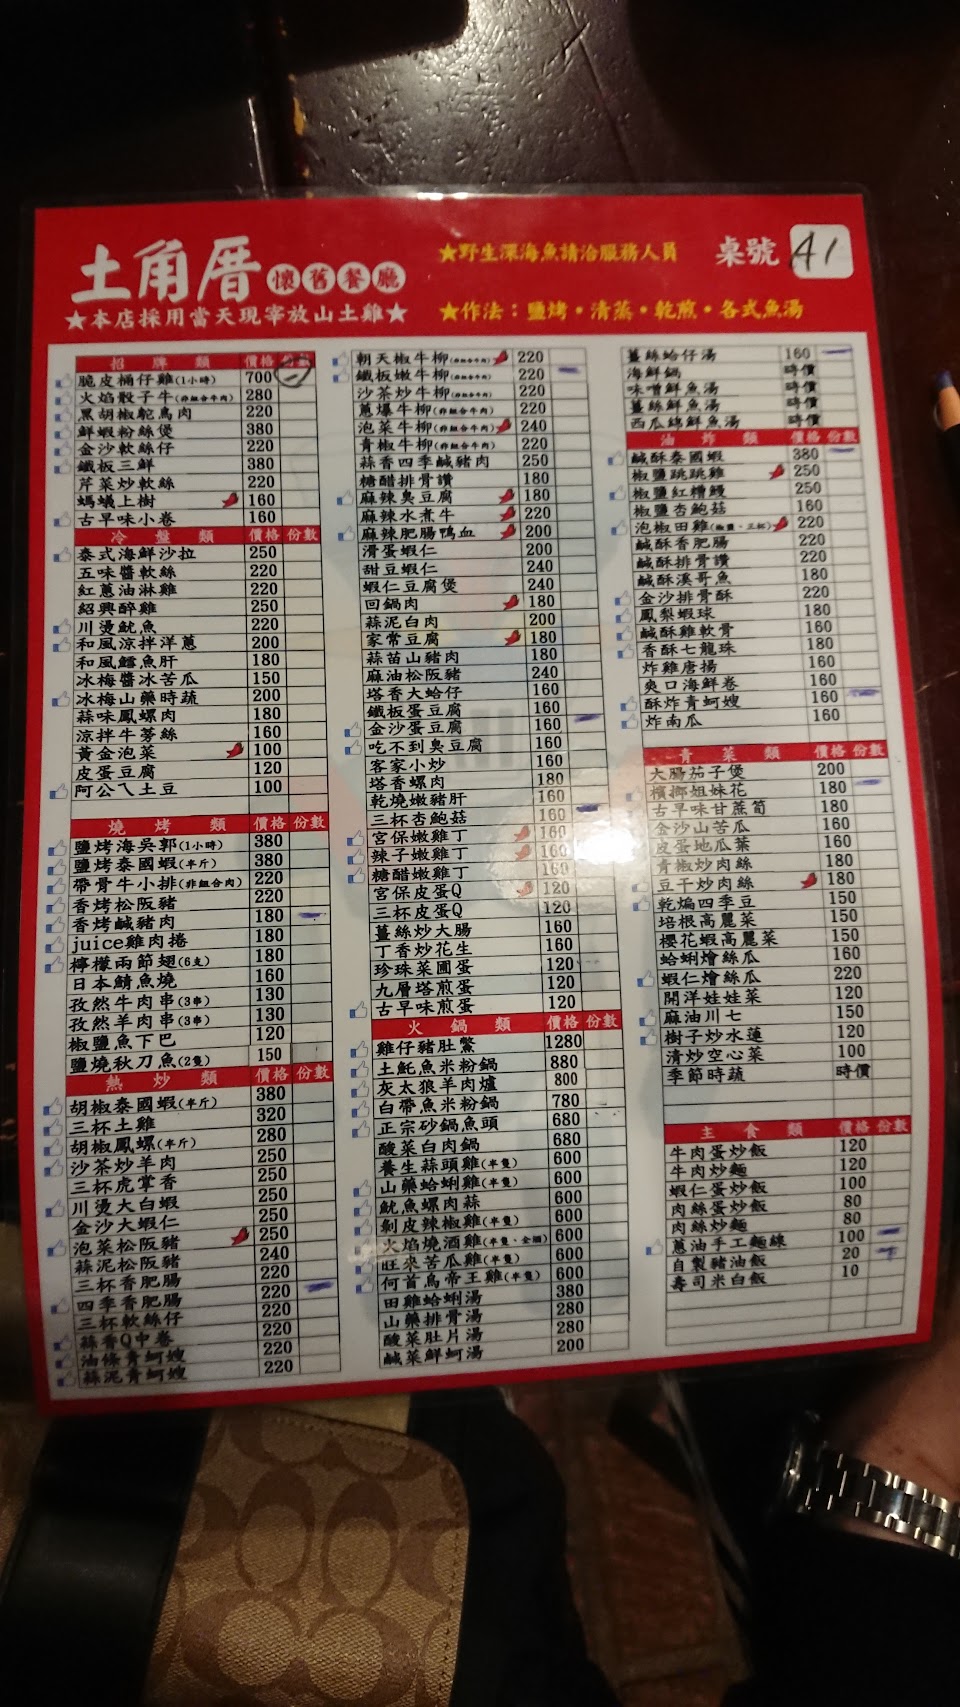 土角厝懷舊餐廳
★野生深海魚請洽服務人員
桌號 A1
★本店採用當天現宰放山土雞★
★作法：鹽烤・清蒸・乾煎・各式魚湯
招牌類 價格 份數
脆皮桶仔雞(1小時) 700
火焰骰子牛(非組合牛肉) 280
黑胡椒鴕鳥肉 220
鮮蝦粉絲煲 380
金沙軟絲仔 220
鐵板三鮮 380
芹菜炒軟絲 220
螞蟻上樹 160
古早味小卷 160
冷盤類 價格 份數
泰式海鮮沙拉 250
五味醬軟絲 220
紅蔥油淋雞 220
紹興醉雞 250
川燙魷魚 220
和風涼拌洋蔥 200
和風鱈魚肝 180
冰梅醬冰苦瓜 150
冰梅山藥時蔬 200
蒜味鳳螺肉 180
涼拌牛蒡絲 160
黃金泡菜 100
皮蛋豆腐 120
阿公ㄟ土豆 100
燒烤類 價格 份數
鹽烤海吳郭(1小時) 380
鹽烤泰國蝦(半斤) 380
帶骨牛小排(非組合肉) 220
香烤松阪豬 220
香烤鹹豬肉 180
juice雞肉捲 180
檸檬兩節翅(6支) 180
日本鯖魚燒 160
孜然牛肉串(3串) 130
孜然羊肉串(3串) 130
椒鹽魚下巴 120
鹽燒秋刀魚(2隻) 150
熱炒類 價格 份數
胡椒泰國蝦(半斤) 380
三杯土雞 320
胡椒鳳螺(半斤) 280
沙茶炒羊肉 250
三杯虎掌香 250
川燙大白蝦 250
金沙大蝦仁 250
泡菜松阪豬 250
蒜泥松阪豬 240
三杯香肥腸 220
四季香肥腸 220
三杯軟絲仔 220
蒜香Q中卷 220
油條青蚵嫂 220
蒜泥青蚵嫂 220
朝天椒牛柳(非組合牛肉) 220
鐵板嫩牛柳(非組合牛肉) 220
沙茶炒牛柳(非組合牛肉) 220
蔥爆牛柳(非組合牛肉) 220
泡菜牛柳(非組合牛肉) 240
青椒牛柳(非組合牛肉) 220
蒜香四季鹹豬肉 250
糖醋排骨讚 180
麻辣臭豆腐 180
麻辣水煮牛 220
麻辣肥腸鴨血 200
滑蛋蝦仁 200
甜豆蝦仁 240
蝦仁豆腐煲 240
回鍋肉 180
蒜泥白肉 200
家常豆腐 180
蒜苗山豬肉 180
麻油松阪豬 240
塔香大蛤仔 160
鐵板蛋豆腐 160
金沙蛋豆腐 160
吃不到臭豆腐 160
客家小炒 160
塔香螺肉 180
乾燒嫩豬肝 160
三杯杏鮑菇 160
宮保嫩雞丁 160
辣子嫩雞丁 160
糖醋嫩雞丁 160
宮保皮蛋Q 120
三杯皮蛋Q 120
薑絲炒大腸 160
丁香炒花生 160
珍珠菜圃蛋 120
九層塔煎蛋 120
古早味煎蛋 120
火鍋類 價格 份數
雞仔豬肚鱉 1280
土魠魚米粉鍋 880
灰太狼羊肉爐 800
白帶魚米粉鍋 780
正宗砂鍋魚頭 680
酸菜白肉鍋 680
養生蒜頭雞(半隻) 600
山藥蛤蜊雞(半隻) 600
魷魚螺肉蒜 600
剝皮辣椒雞(半隻) 600
火焰燒酒雞(半隻、全酒) 600
旺來苦瓜雞(半隻) 600
何首烏帝王雞(半隻) 600
田雞蛤蜊湯 380
山藥排骨湯 280
酸菜肚片湯 280
鹹菜鮮蚵湯 200
薑絲蛤仔湯 160
海鮮鍋 時價
味噌鮮魚湯 時價
薑絲鮮魚湯 時價
西瓜綿鮮魚湯 時價
油炸類 價格 份數
鹹酥泰國蝦 380
椒鹽跳跳雞 250
椒鹽紅糟鰻 250
椒鹽杏鮑菇 160
泡椒田雞(椒鹽、三杯) 220
鹹酥香肥腸 220
鹹酥排骨讚 220
鹹酥溪哥魚 180
金沙排骨酥 220
鳳梨蝦球 180
鹹酥雞軟骨 160
香酥七龍珠 180
炸雞唐揚 160
爽口海鮮卷 160
酥炸青蚵嫂 160
炸南瓜 160
青菜類 價格 份數
大腸茄子煲 200
檳榔姐妹花 180
古早味甘蔗筍 180
金沙山苦瓜 160
皮蛋地瓜葉 160
青椒炒肉絲 180
豆干炒肉絲 180
乾煸四季豆 150
培根高麗菜 150
櫻花蝦高麗菜 150
蛤蜊燴絲瓜 160
蝦仁燴絲瓜 220
開洋娃娃菜 120
麻油川七 150
樹子炒水蓮 120
清炒空心菜 100
季節時蔬 時價
主食類 價格 份數
牛肉蛋炒飯 120
牛肉炒麵 120
蝦仁蛋炒飯 100
肉絲蛋炒飯 80
肉絲炒麵 80
蔥油手工麵線 100
自製豬油飯 20
壽司米白飯 10